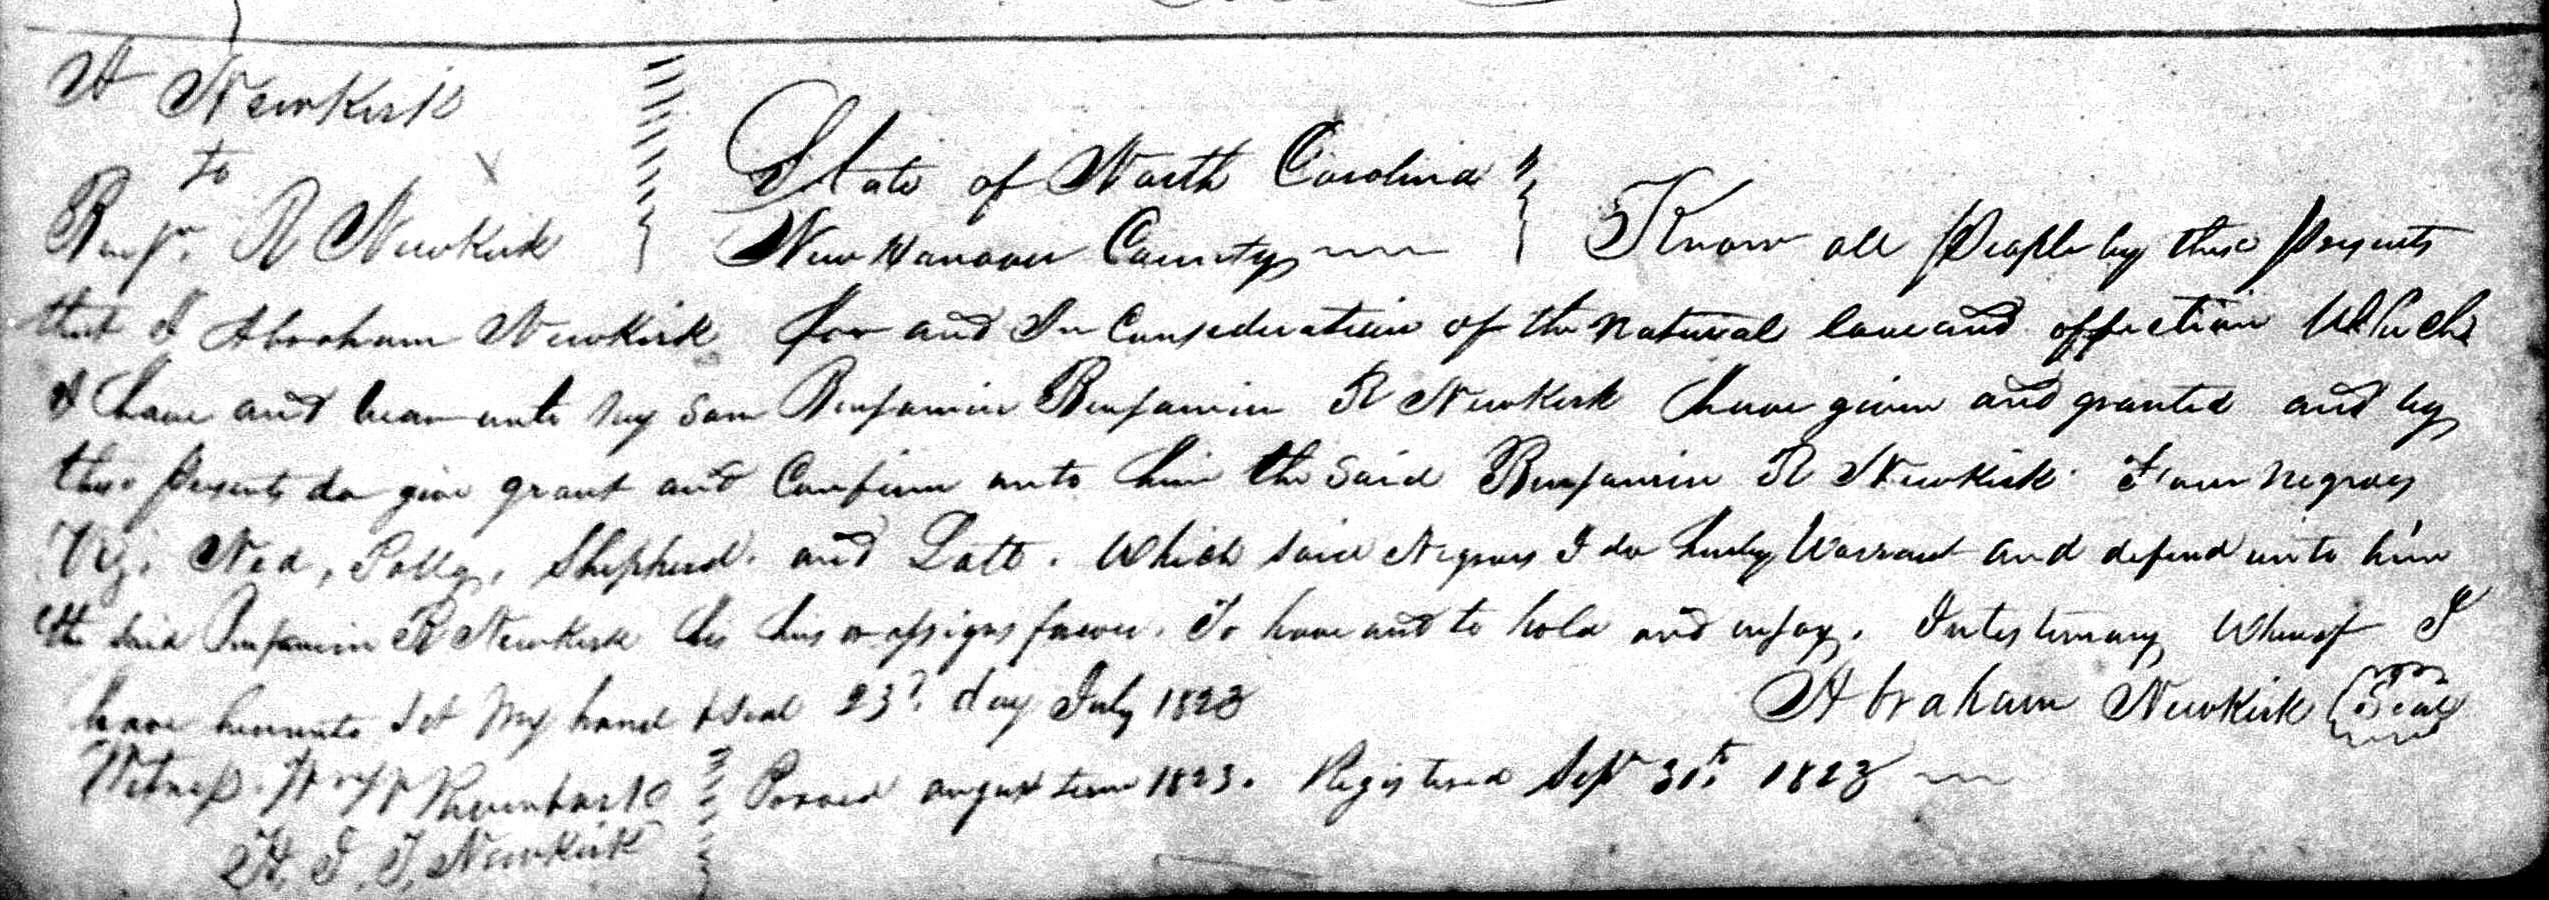 A Newkirk
to
Benjn. R Newkirk
State of North Carolina
New Hanover County
Know all People by these Presents
that I Abraham Newkirk for and In Consideration of the natural love and affection Which
I have and bear unto my son Benjamin Benjamin R Newkirk have given and granted and by
these presents do give grant and Confirm unto him the said Benjamin R Newkirk Four negroes
Viz. Ned, Polly, Shepherd. and Latt. Which said Negroes I do hereby Warrant and defend unto him
the said Benjamin R Newkirk his hirs or assigns forever. To have and to hold and enjoy. In testimony Whereof I
have hereunto set my hand & seal 23d. day July 1823
Abraham Newkirk Seal
Witness.
H. J. T, Newkirk
Proved august term 1823. Registered Sept 31t. 1823